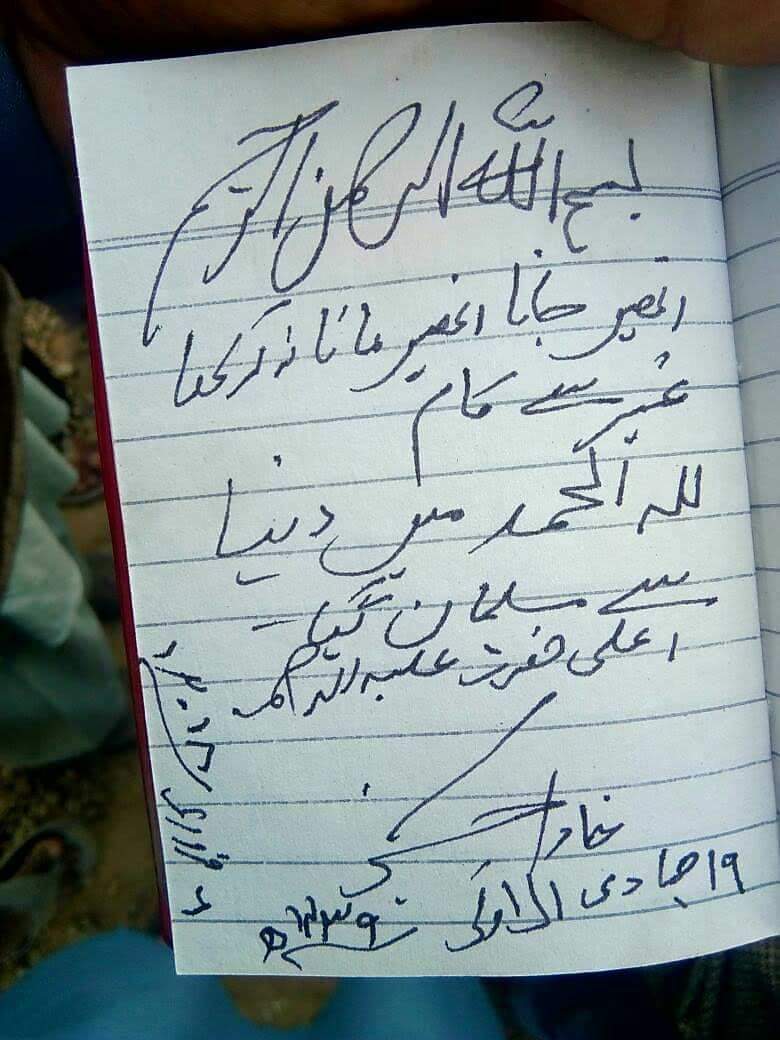 بسم اللہ الرحمن الرحیم
انھیں جانا انھیں مانا نہ رکھا
غیر سے کام
للہ الحمد میں دنیا
سے مسلمان گیا۔
اعلی حضرت علیہ الرحمہ
خادم
۱۹ جمادی الاولی ۱۴۳۹ھ